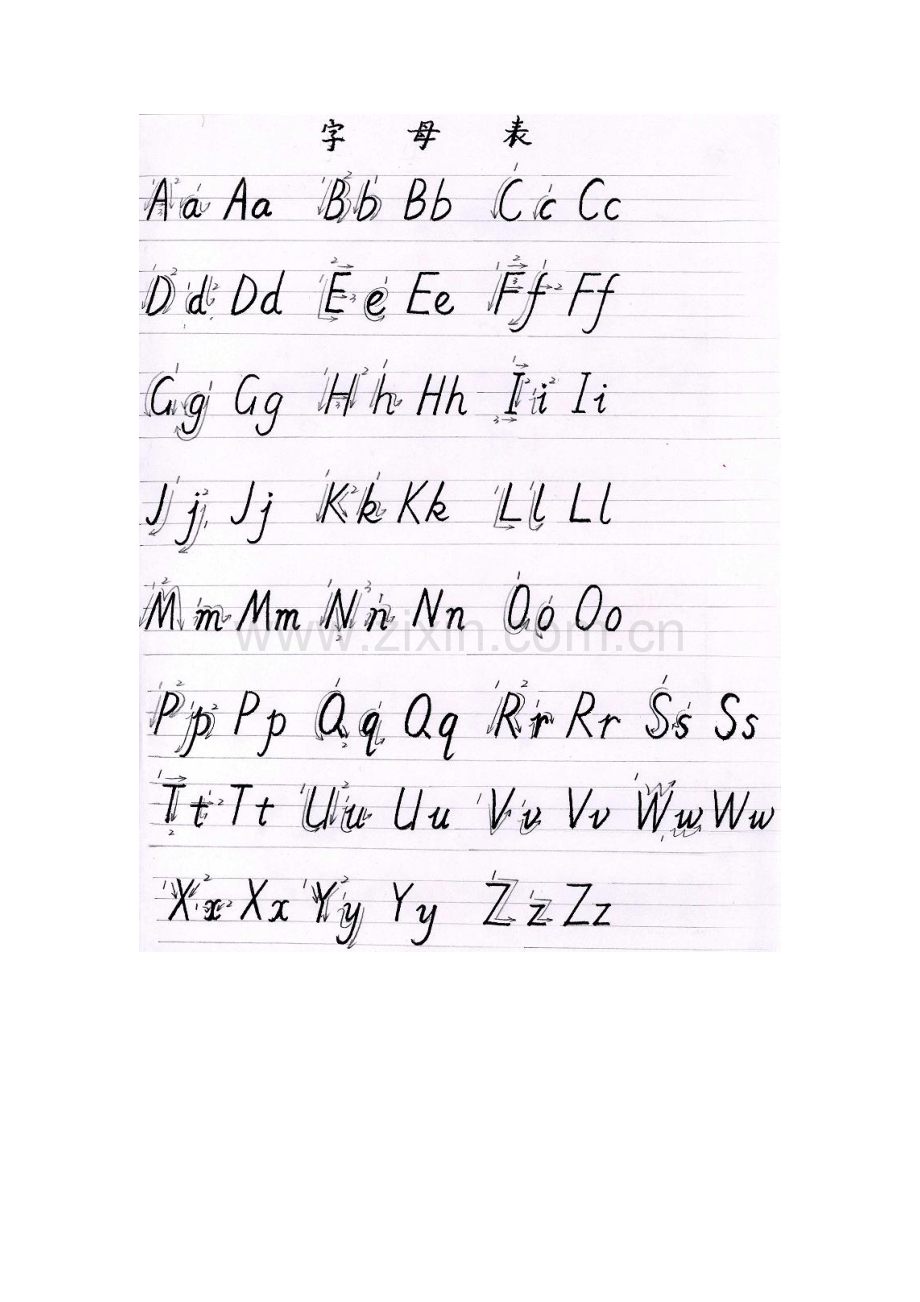 字 母 表
Aa Aa Bb Bb Cc Cc
Dd Dd Ee Ee Ff Ff
Gg Gg Hh Hh Ii Ii
Jj Jj Kk Kk Ll Ll
Mm Mm Nn Nn Oo Oo
www.zixin.com.cn
Pp Pp Qq Qq Rr Rr Ss Ss
Tt Tt Uu Uu Vv Vv Ww Ww
Xx Xx Yy Yy Zz Zz